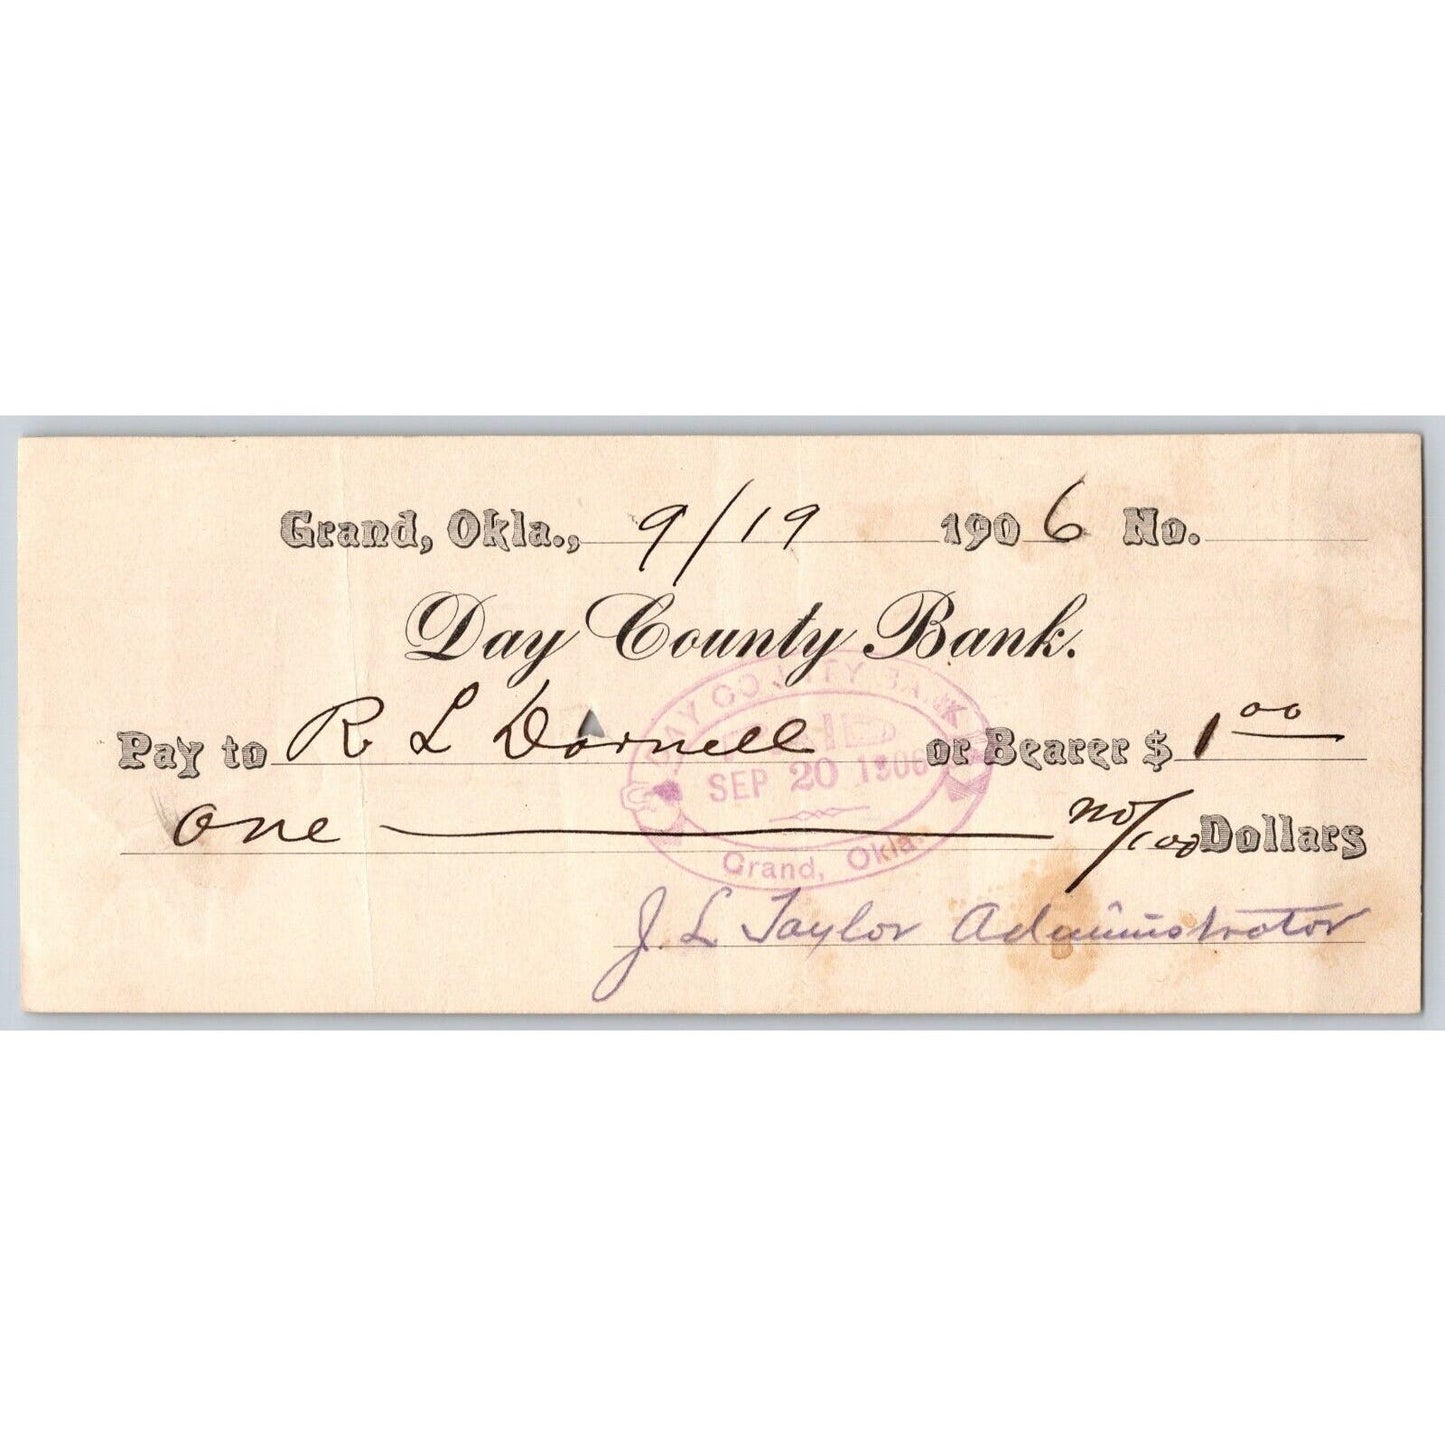 Grand, Okla., 9/19 1906 No.
Day County Bank.
Pay to R L Darnell or Bearer $ 1 00
One no/100 Dollars
J. L Taylor Administrator
DAY COUNTY BANK
SEP 20 1906
Grand, Okla.